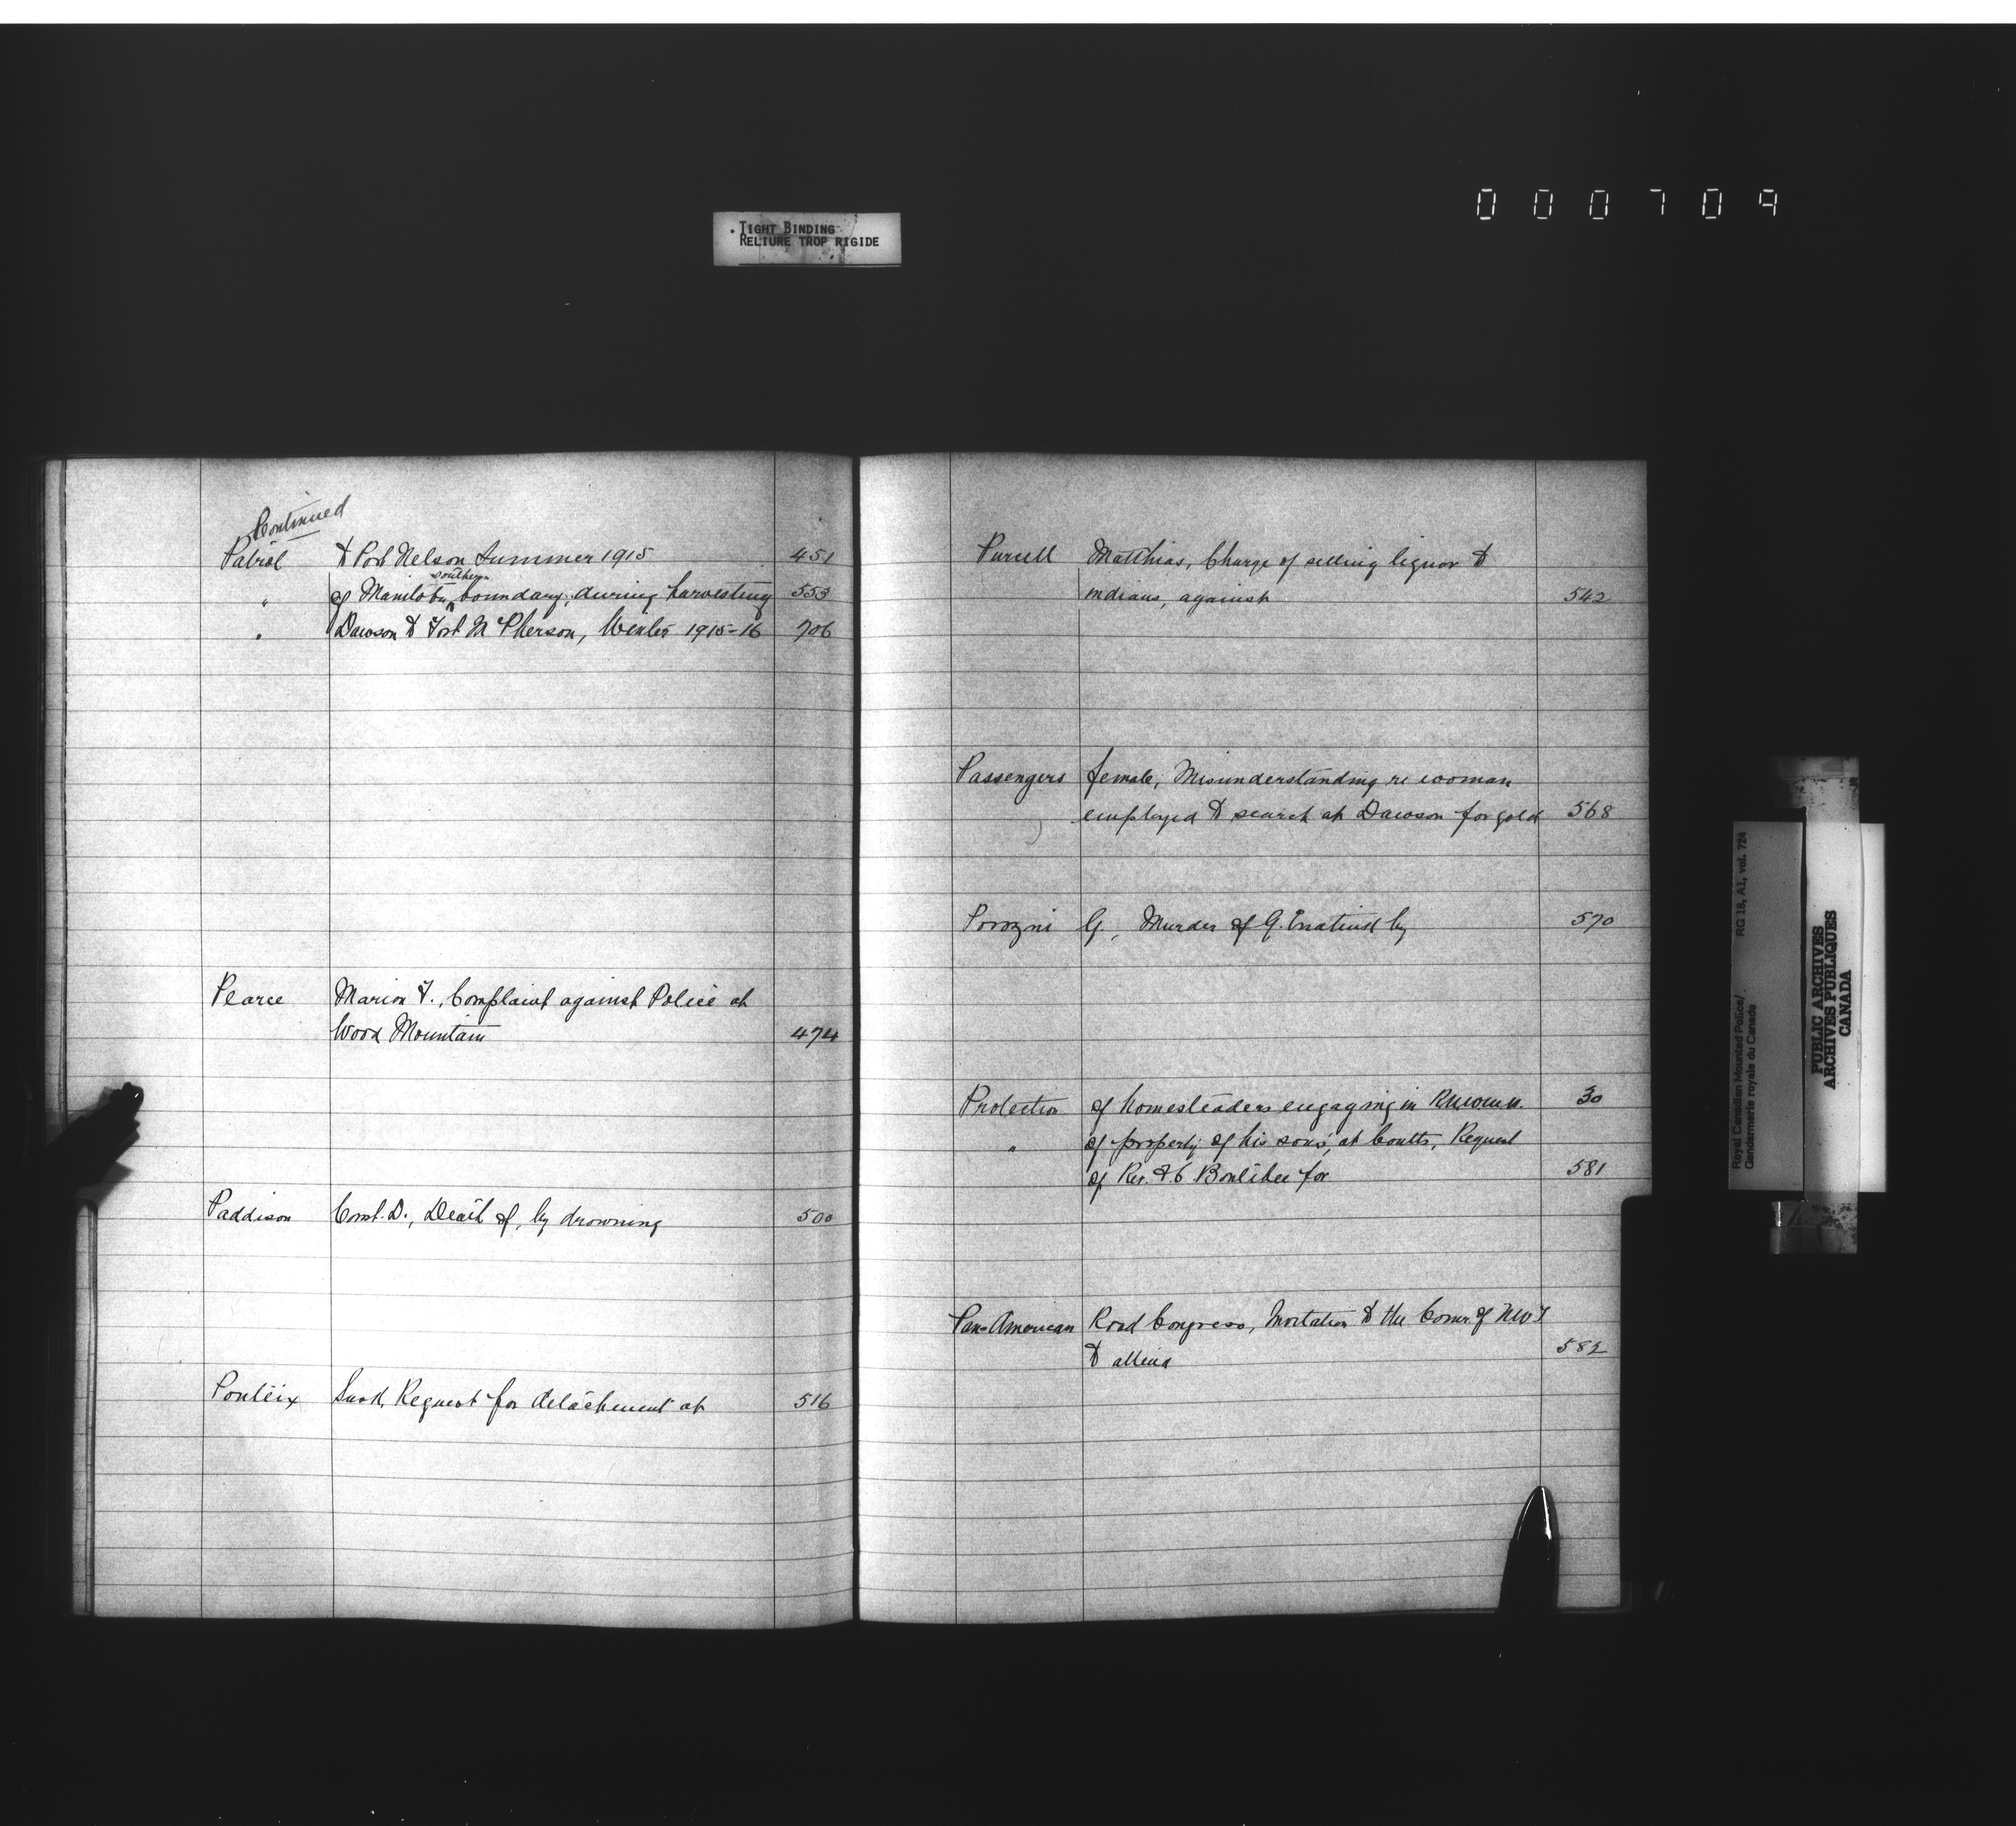 000709
TIGHT BINDING
RELIURE TROP RIGIDE
Continued
Patrol to Port Nelson Summer 1915 451
" of Manitoba southern boundary; during harvesting 553
" Dawson to Fort McPherson, Winter 1915-16 706
Pearce Marion F., Complaint against Police at
Wood Mountain 474
Paddison Const. D., Death of, by drowning 500
Ponteix Sask, Request for detachment at 516
Purcell Matthias, Charge of selling liquor to
indians, against 542
Passengers female; Misunderstanding re woman
employed to search at Dawson for gold 568
Porozni G, Murder of G. by 570
Protection of homesteaders engaging in 30
" of property of his sons, at Coutts, Request
of Rev. for 581
Pan-American Road Congress, Invitation to the Comr. of NWT
to attend 582
Royal Canadian Mounted Police/ RG 18, A1, vol. 724
Gendarmerie royale du Canada
PUBLIC ARCHIVES
ARCHIVES PUBLIQUES
CANADA